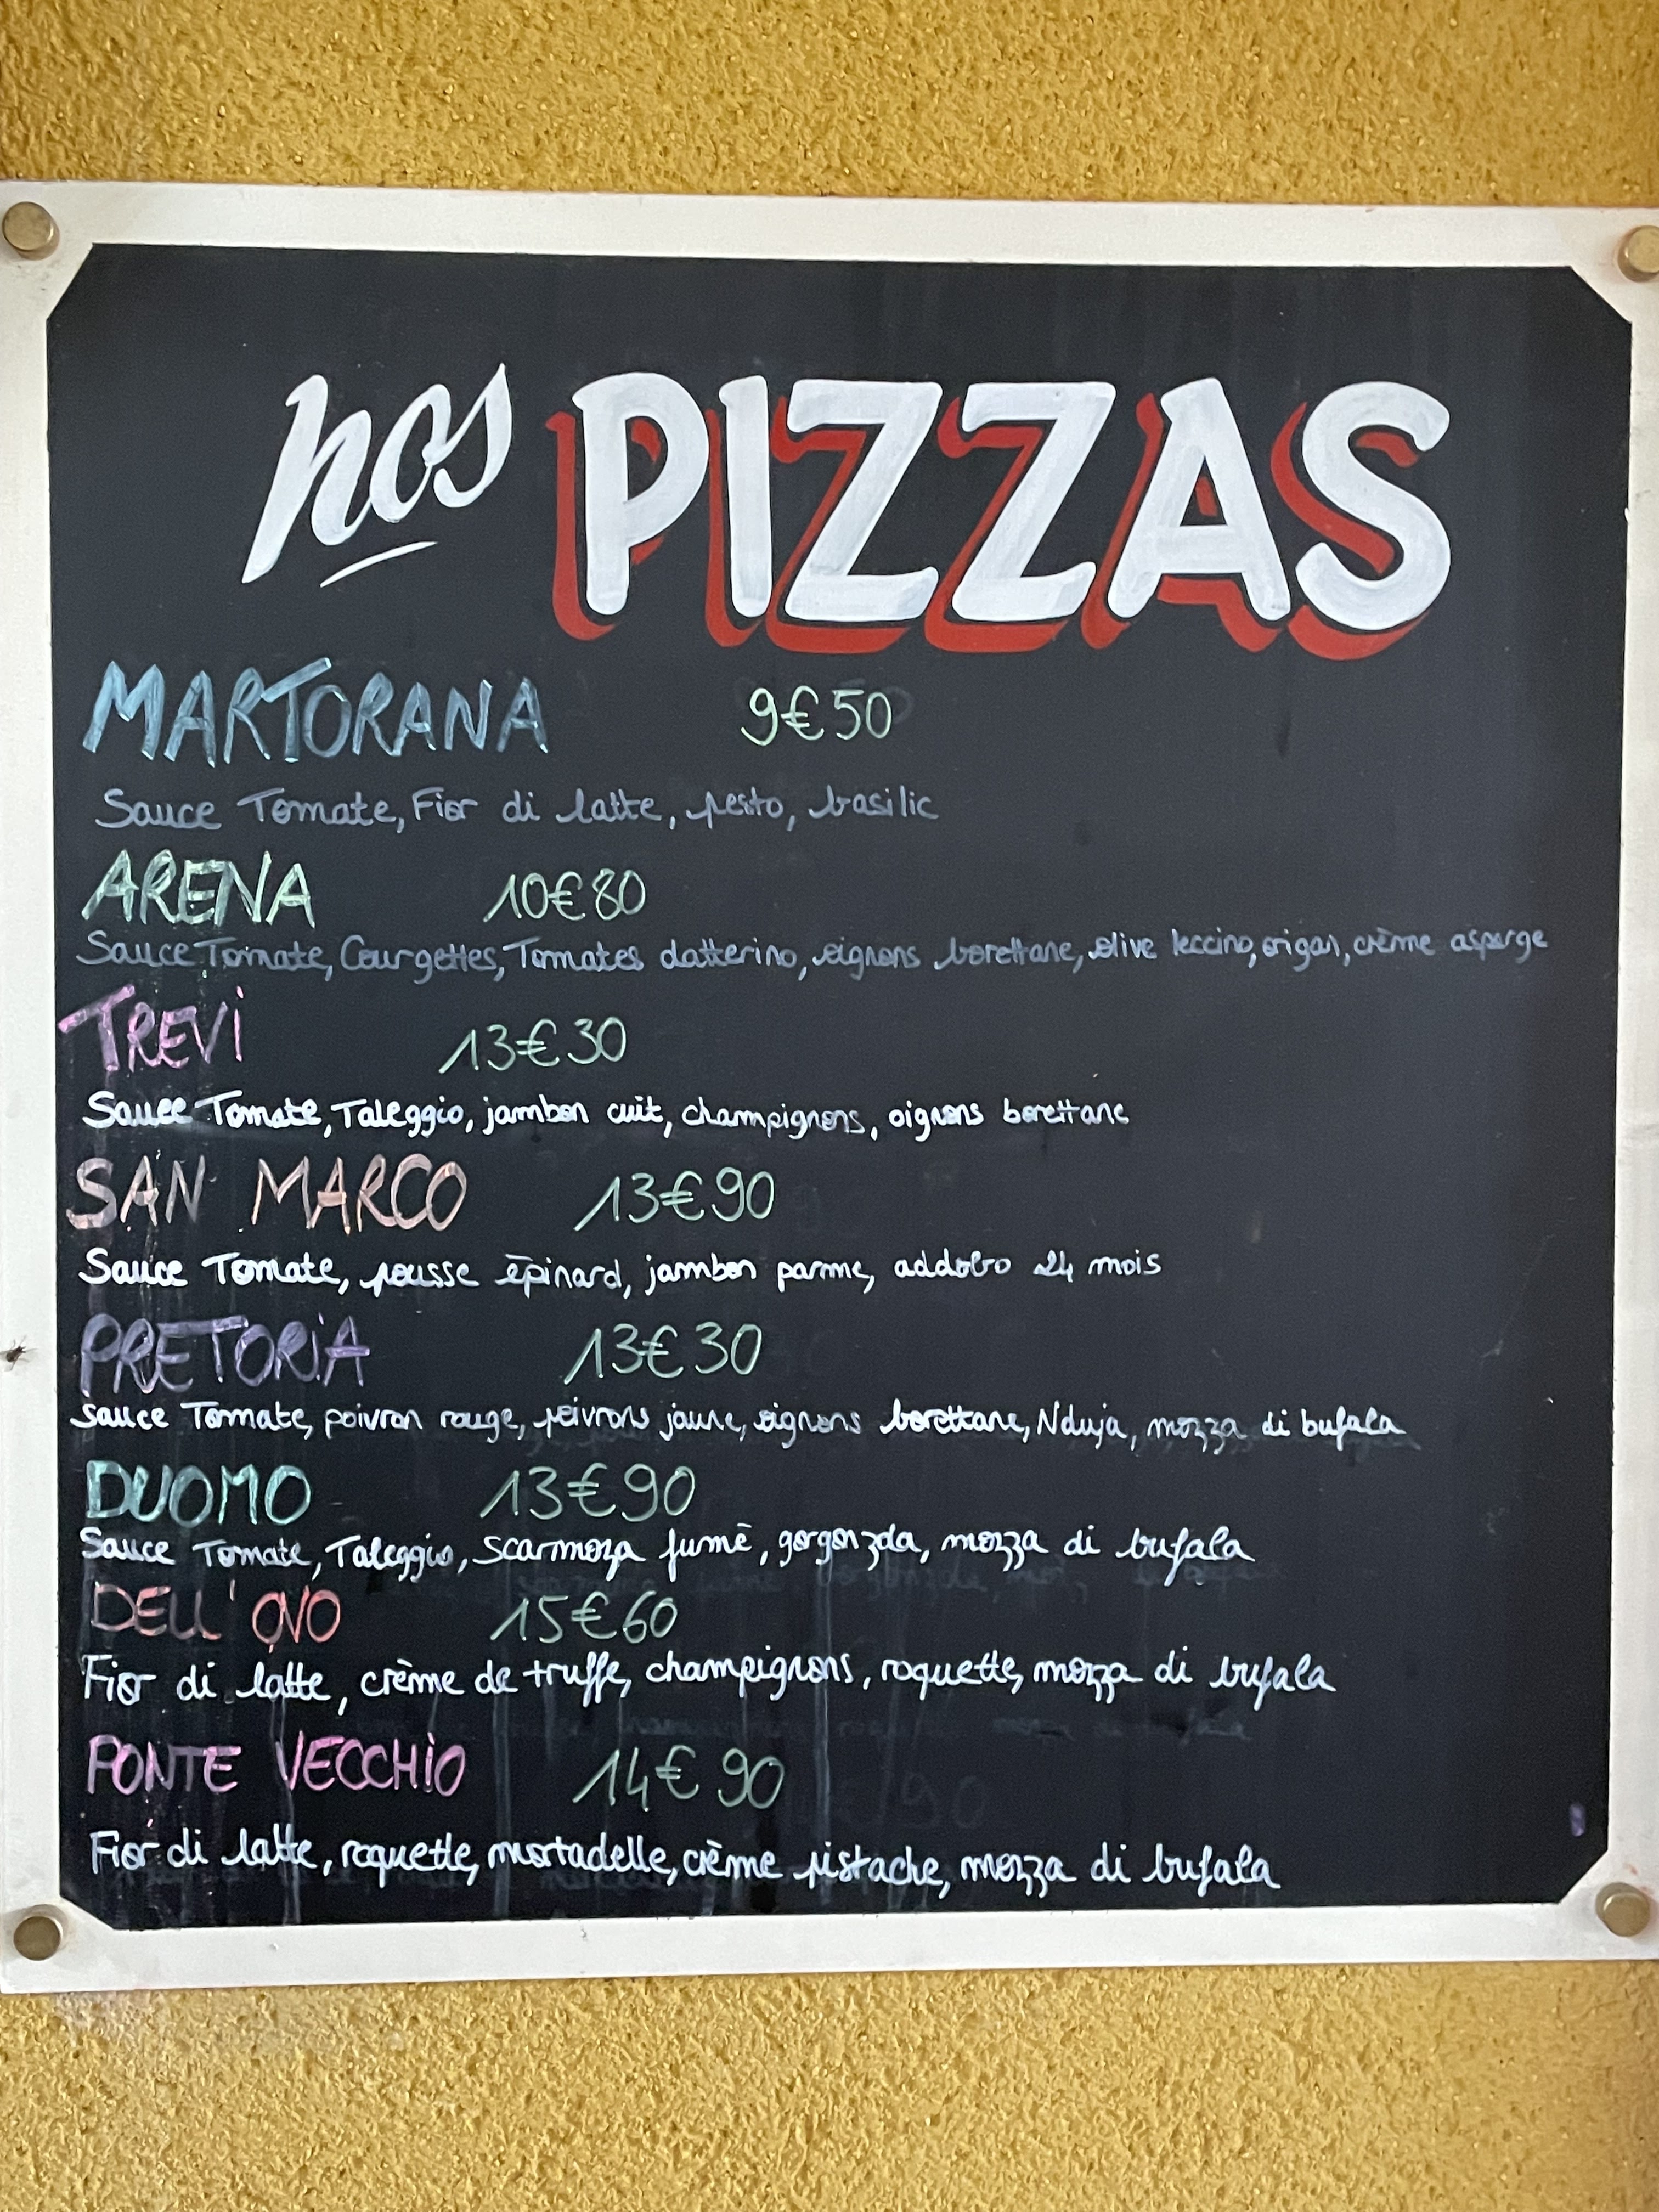 nos PIZZAS
MARTORANA 9€50
Sauce Tomate, Fior di latte, pesto, basilic
ARENA 10€80
Sauce Tomate, Courgettes, Tomates datterino, oignons borettane, olive leccino, origan, crème asperge
TREVI 13€30
Sauce Tomate, Taleggio, jambon cuit, champignons, oignons borettane
SAN MARCO 13€90
Sauce Tomate, pousse épinard, jambon parme, addobo 24 mois
PRETORIA 13€30
Sauce Tomate, poivron rouge, poivrons jaune, oignons borettane, Nduja, mozza di bufala
DUOMO 13€90
Sauce Tomate, Taleggio, scarmoza fumé, gorgonzola, mozza di bufala
DELL'OVO 15€60
Fior di latte, crème de truffe, champignons, roquette, mozza di bufala
PONTE VECCHIO 14€90
Fior di latte, roquette, mortadelle, crème pistache, mozza di bufala